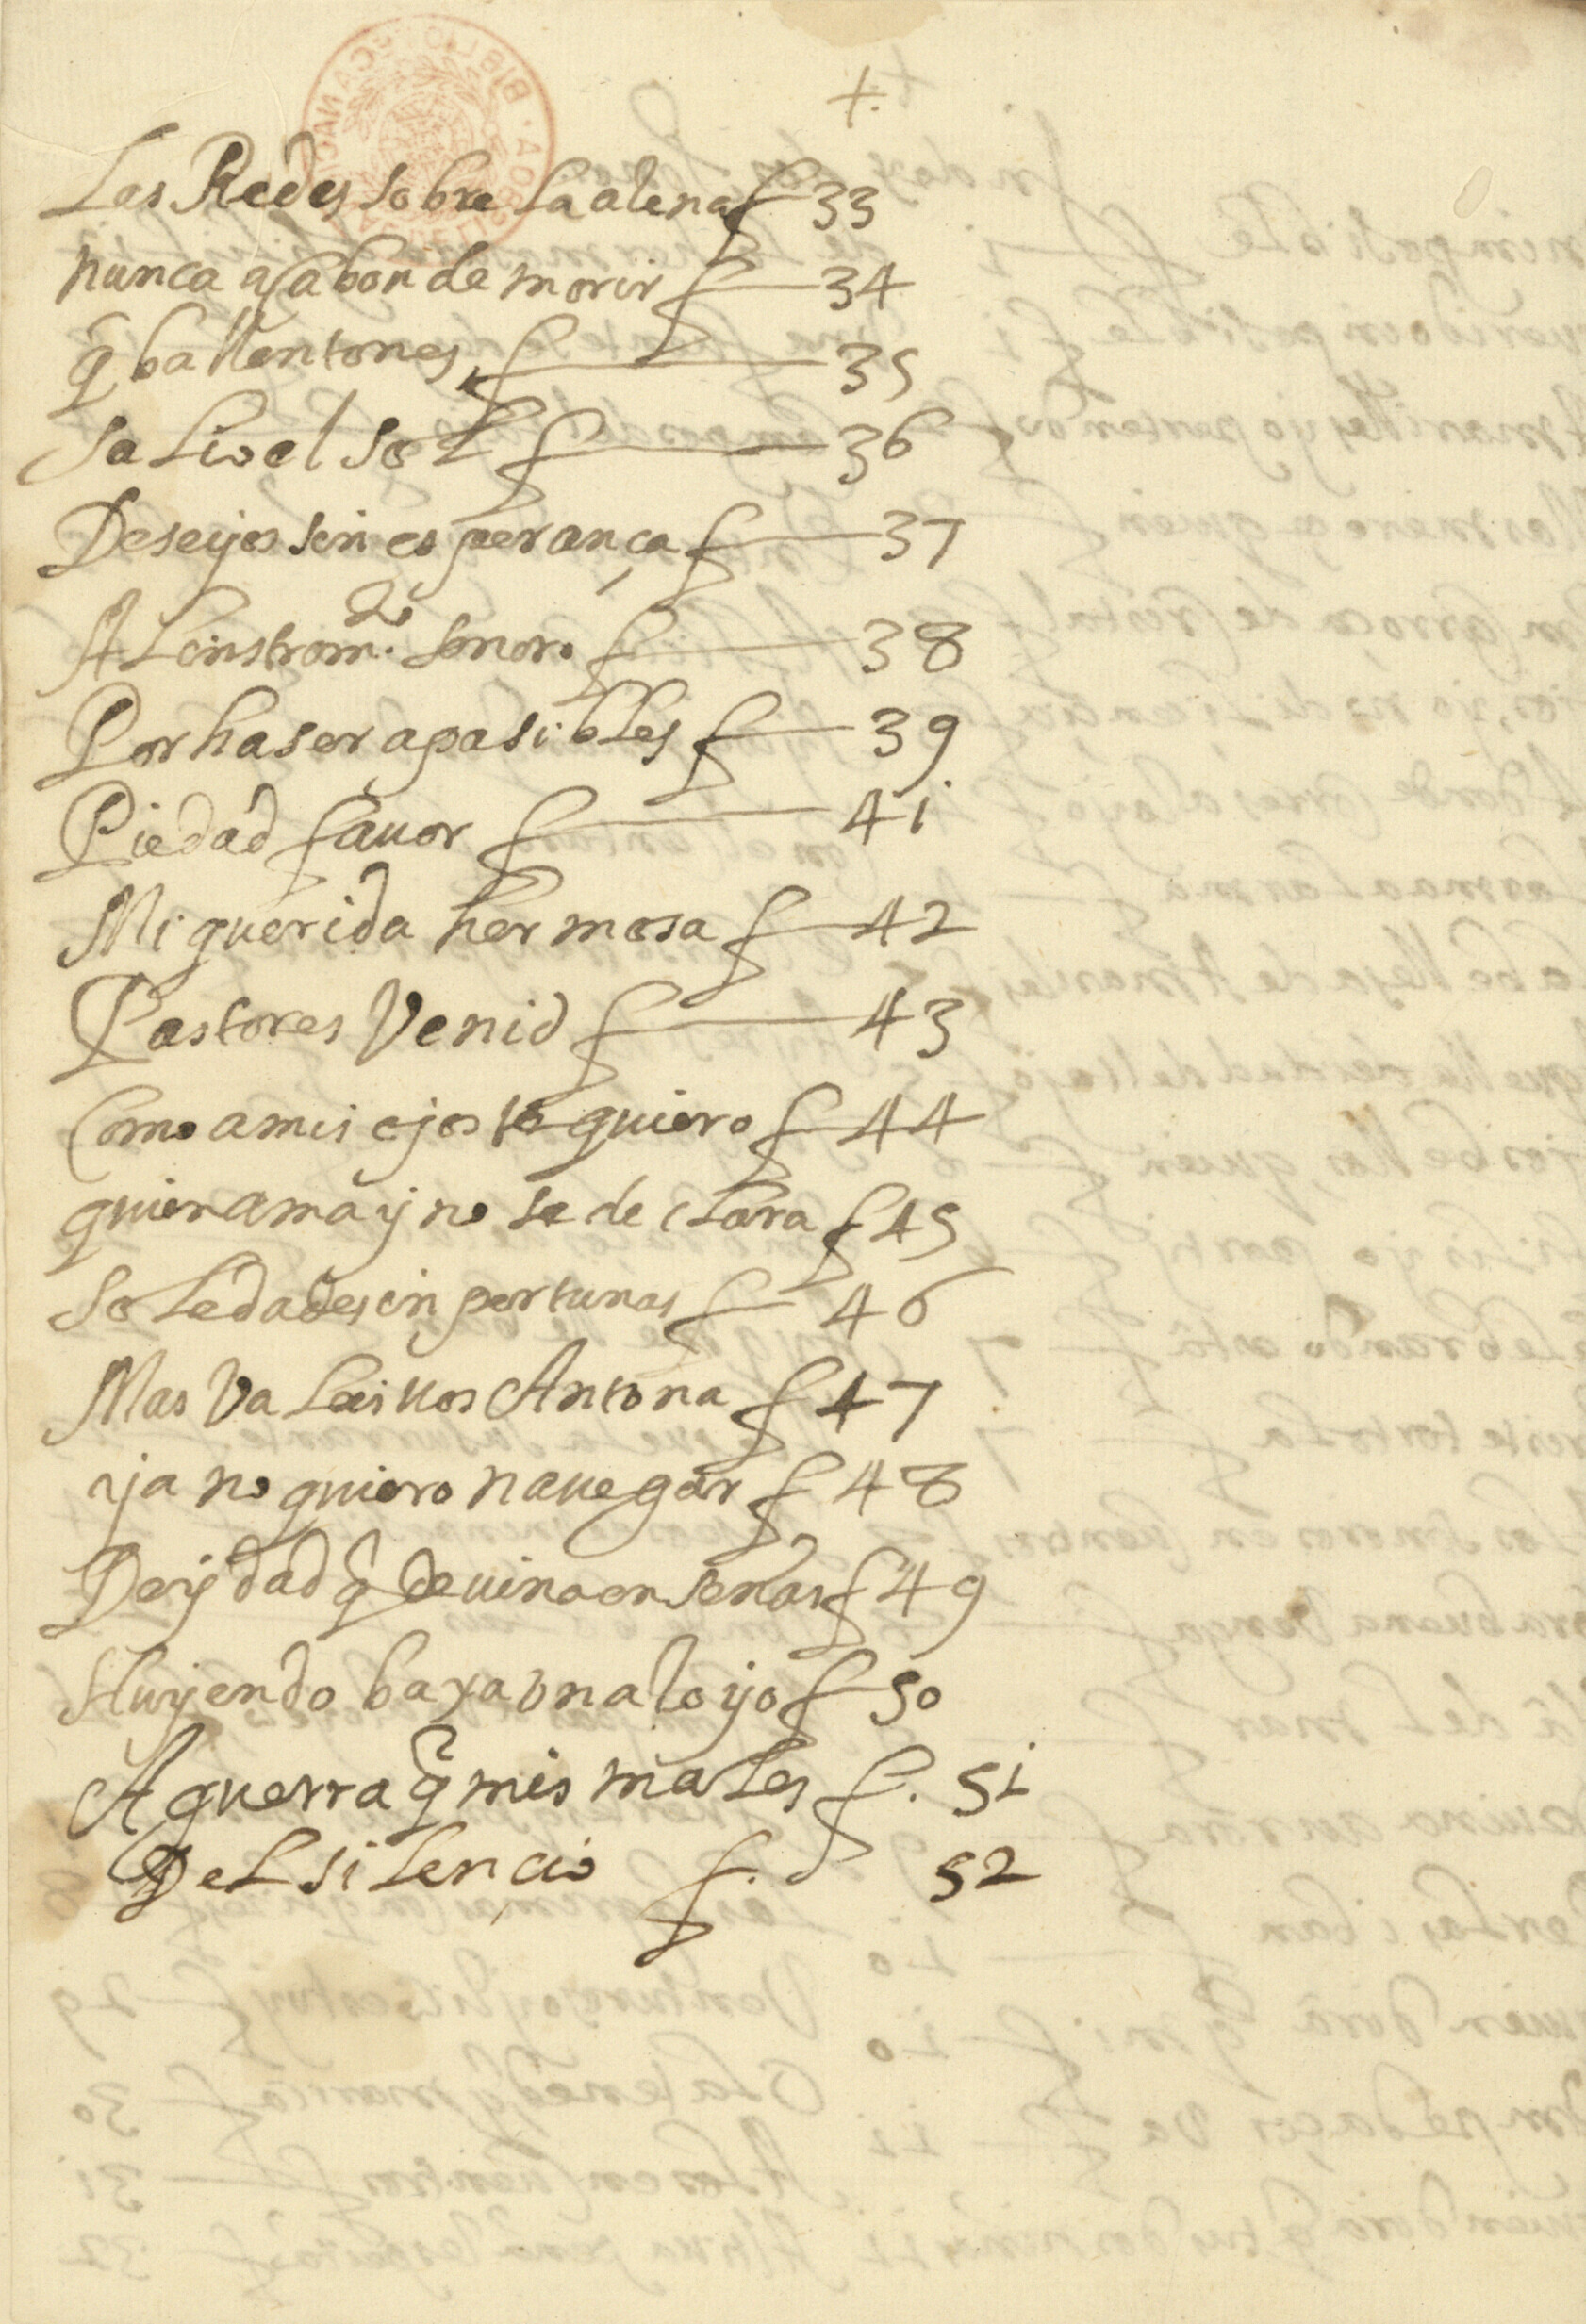 +.
Las Redes sobre La alena f 33
nunca acaban de morir f 34
q̃ ballentones f 35
Salio el Sol f 36
Deseyos sin esperança f 37
Al instrom.to sonoro f 38
Por haser apasibles f 39
Piedad fauor f 41
Mi querida hermosa f 42
Pastores Venid f 43
Como a mis ojos te quiero f 44
quien ama y no se declara f 45
Soledades inportunas f 46
Mas Valeis uos Antona f 47
ya no quiero nauegar f 48
Deydad q̃ deuina en señas f 49
Huyendo baxa un aloyo f 50
A guerra q̃ mis males f. 51
Del silençio f. 52